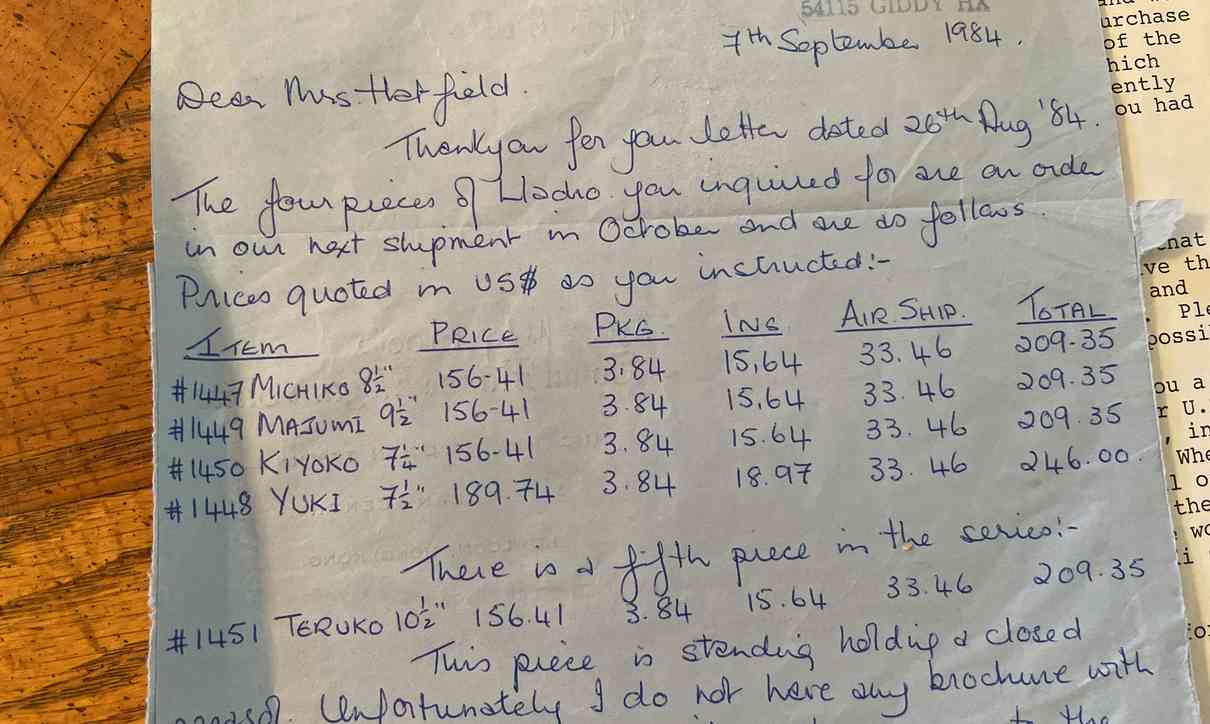 54115 GIDDY HX
7th September 1984.
Dear Mrs. Hatfield.
Thankyou for your letter dated 26th Aug '84.
The four pieces of Lladro you inquired for are on order
in our next shipment in October and are as follows.
Prices quoted in US$ as you instructed:-
ITEM PRICE PKG. INS. AIR.SHIP. TOTAL
#1447 MICHIKO 8½" 156-41 3.84 15.64 33.46 209-35
#1449 MAJUMI 9½" 156-41 3.84 15.64 33.46 209.35
#1450 KIYOKO 7¼" 156-41 3.84 15.64 33.46 209.35
#1448 YUKI 7½" 189.74 3.84 18.97 33.46 246.00.
There is a fifth piece in the series:-
#1451 TERUKO 10½" 156.41 3.84 15.64 33.46 209.35
This piece is standing holding a closed
Unfortunately I do not have any brochure with
urchase
of the
hich
ently
ou had
that
ve th
and
. Ple
possi
ou a
r U.
, in
Whe
l o
the
wo
i